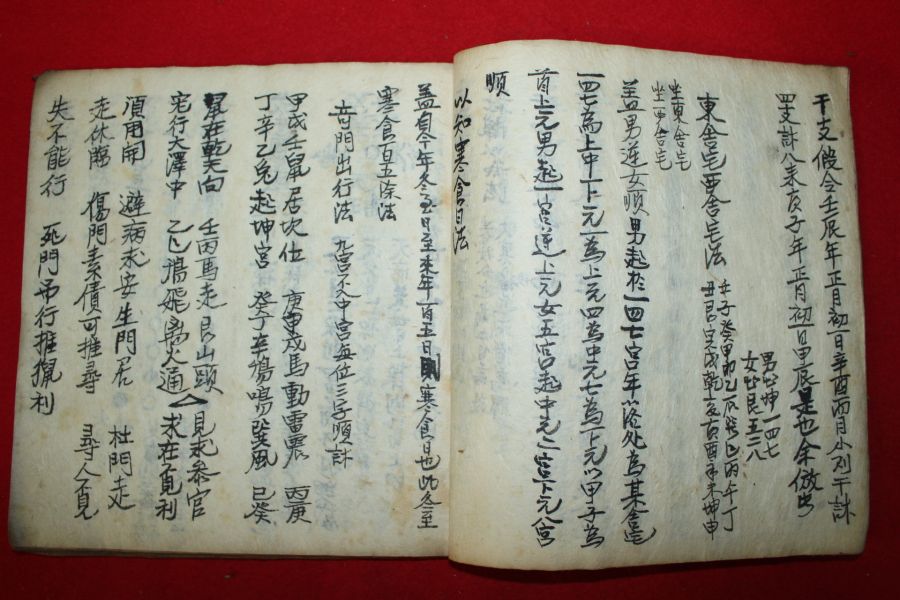 干支假令壬辰年正月初一日辛酉而月小則干訣
四支訣八來友子年正月初一日甲辰是也余倣此
東舍宅西舍宅法
壬子癸甲卯乙 巳丙午丁
丑艮寅戌乾亥 庚酉辛未坤申
男 坤一四七
女 艮五二八
坐東舍宅
坐西舍宅
盖男逆女順男起於一四七宮年落處為某舍宅
一四七為上中下元一為上元四為中元七為下元以甲子為
首上元男起一宮逆上元女五宮起中元二宮下元八宮
順
以知寒食日法
盖自今年冬至日至來年一百五日則寒食日也此冬至
寒食百五除法
奇門出行法 九宮不入中宮每位三字順訣
甲戊壬鼠居坎位 庚 戌馬動雷震 丙庚
丁辛乙兔起坤宮 癸丁辛鷄鳴巽風 己癸
鼠在乾天向 壬丙馬走艮山頭 見求參官
宅行大澤中 乙己鷄飛离火通 求在 利
須用開 避病求安生門居 杜門走
走休臨 傷門索債可推尋 尋人 見
失不能行 死門吊行推獵利